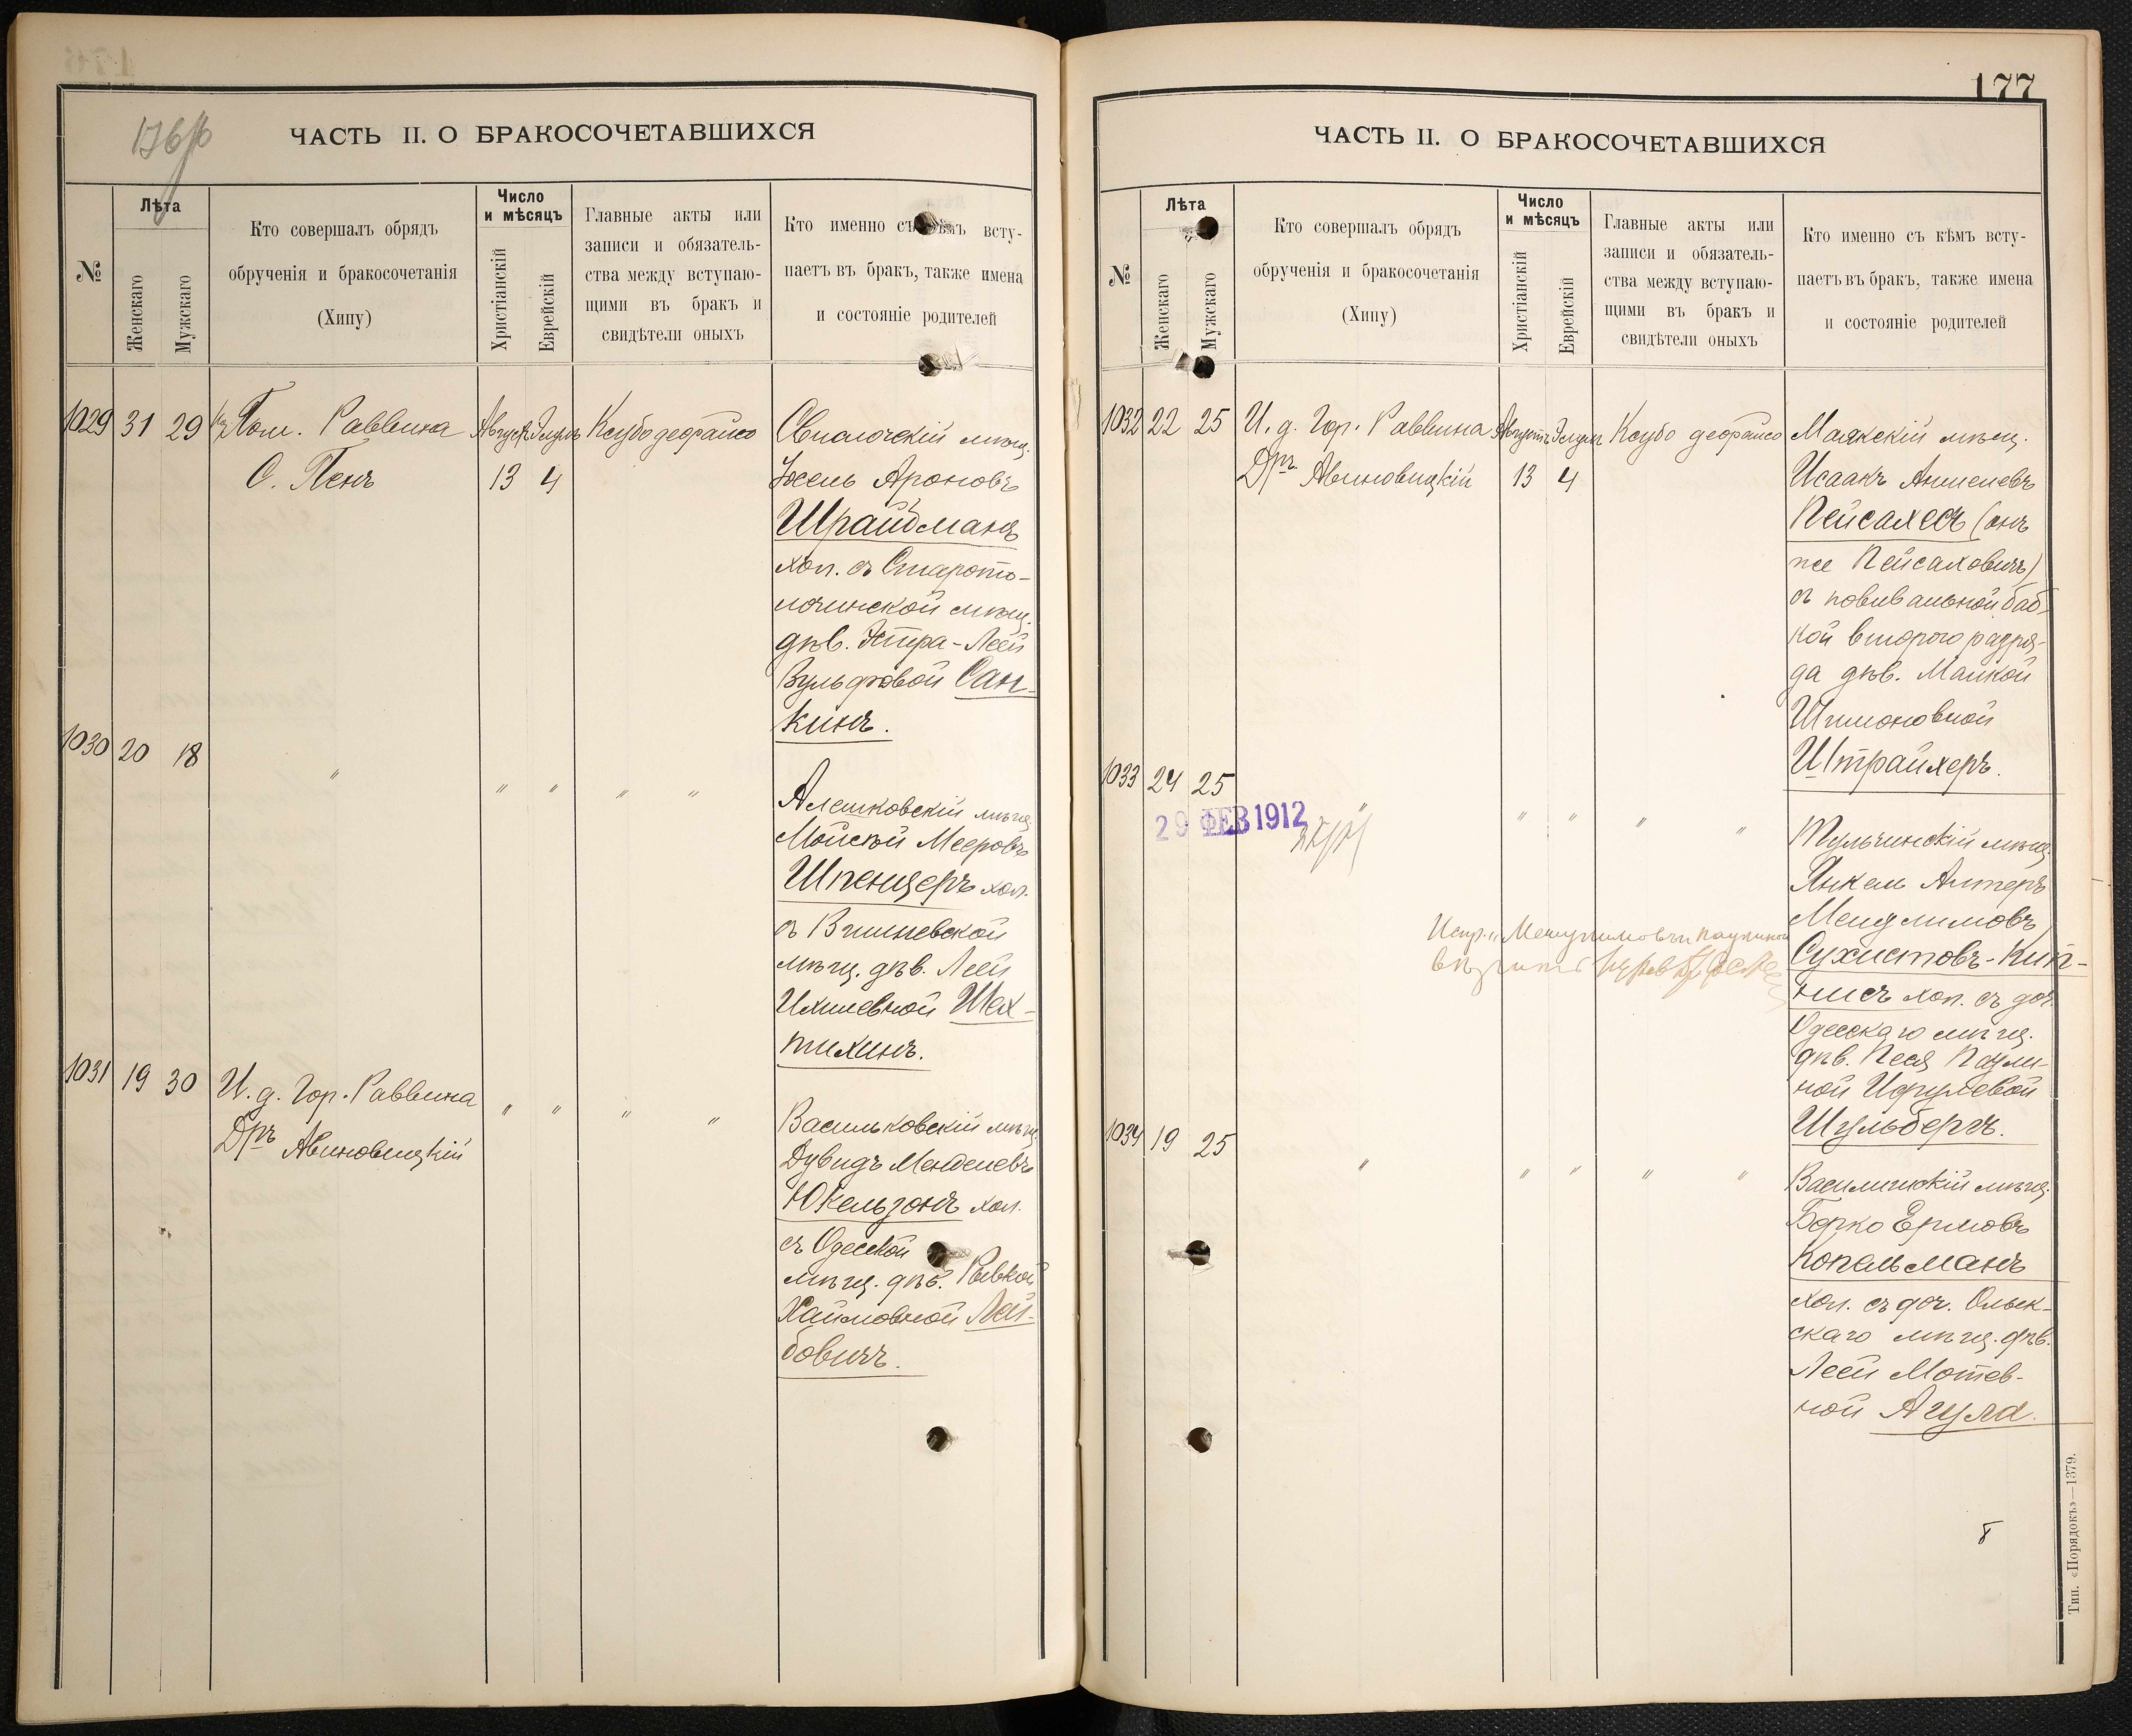 176об
ЧАСТЬ II. О БРАКОСОЧЕТАВШИХСЯ
№
Лѣта
Женскаго
Мужскаго
Кто совершалъ обрядъ
обрученія и бракосочетанія
(Хипу)
Число
и мѣсяцъ
Христіанскій
Еврейскій
Главные акты или
записи и обязатель-
ства между вступаю-
щими въ бракъ и
свидѣтели оныхъ
Кто именно съ кѣмъ всту-
паетъ въ бракъ, также имена
и состояніе родителей
1029 31 29 Пом. Раввина Августъ Элулъ Ксубо деорайсо
О. Пенъ 13 4
мѣщ.
Іосель Ароновъ
Шрайдманъ
хол. съ Старокон-
мѣщ.
дѣв. Эстра-Леей
Вульфовой Сан-
кинъ.
1030 20 18 " " " " "
Алешковскій мѣщ.
Мойсей Мееровъ
Шпенцеръ хол.
съ Вишневской
мѣщ. дѣв. Леей
Ихилевной Шех-
тихинъ.
1031 19 30 И. д. Гор. Раввина " " " "
Дръ Авиновицкій
Васильковскій мѣщ.
Дувидъ Менделевъ
Юкельзонъ хол.
съ Одесской
мѣщ. дѣв. Ривкой
Хаимовной Лей-
бовичъ.
177
ЧАСТЬ II. О БРАКОСОЧЕТАВШИХСЯ
№
Лѣта
Женскаго
Мужскаго
Кто совершалъ обрядъ
обрученія и бракосочетанія
(Хипу)
Число
и мѣсяцъ
Христіанскій
Еврейскій
Главные акты или
записи и обязатель-
ства между вступаю-
щими въ бракъ и
свидѣтели оныхъ
Кто именно съ кѣмъ всту-
паетъ въ бракъ, также имена
и состояніе родителей
1032 22 25 И. д. Гор. Раввина Августъ Элулъ Ксубо деорайсо
Дръ Авиновицкій 13 4
Маякскій мѣщ.
Исаакъ Аншелевъ
Пейсахесъ (онъ
же Пейсаховичъ)
съ повивальной баб-
кой второго разря-
да дѣв. Малкой
Шимоновной
Штрайхеръ.
1033 24 25 " " " " "
29 ФЕВ 1912
Тульчинскій мѣщ.
Янкель Алтеръ
Сухистовъ-Кип-
нисъ хол. съ доч.
Одесскаго мѣщ.
дѣв. Песя Паули-
ной
Шульбергъ.
Испр.
1034 19 25 " " " " "
мѣщ.
Борко Ермовъ
Копельманъ
хол. съ доч. Олык-
скаго мѣщ. дѣв.
Леей Мотев-
ной Агула.
Тип. «Порядокъ»—1379.